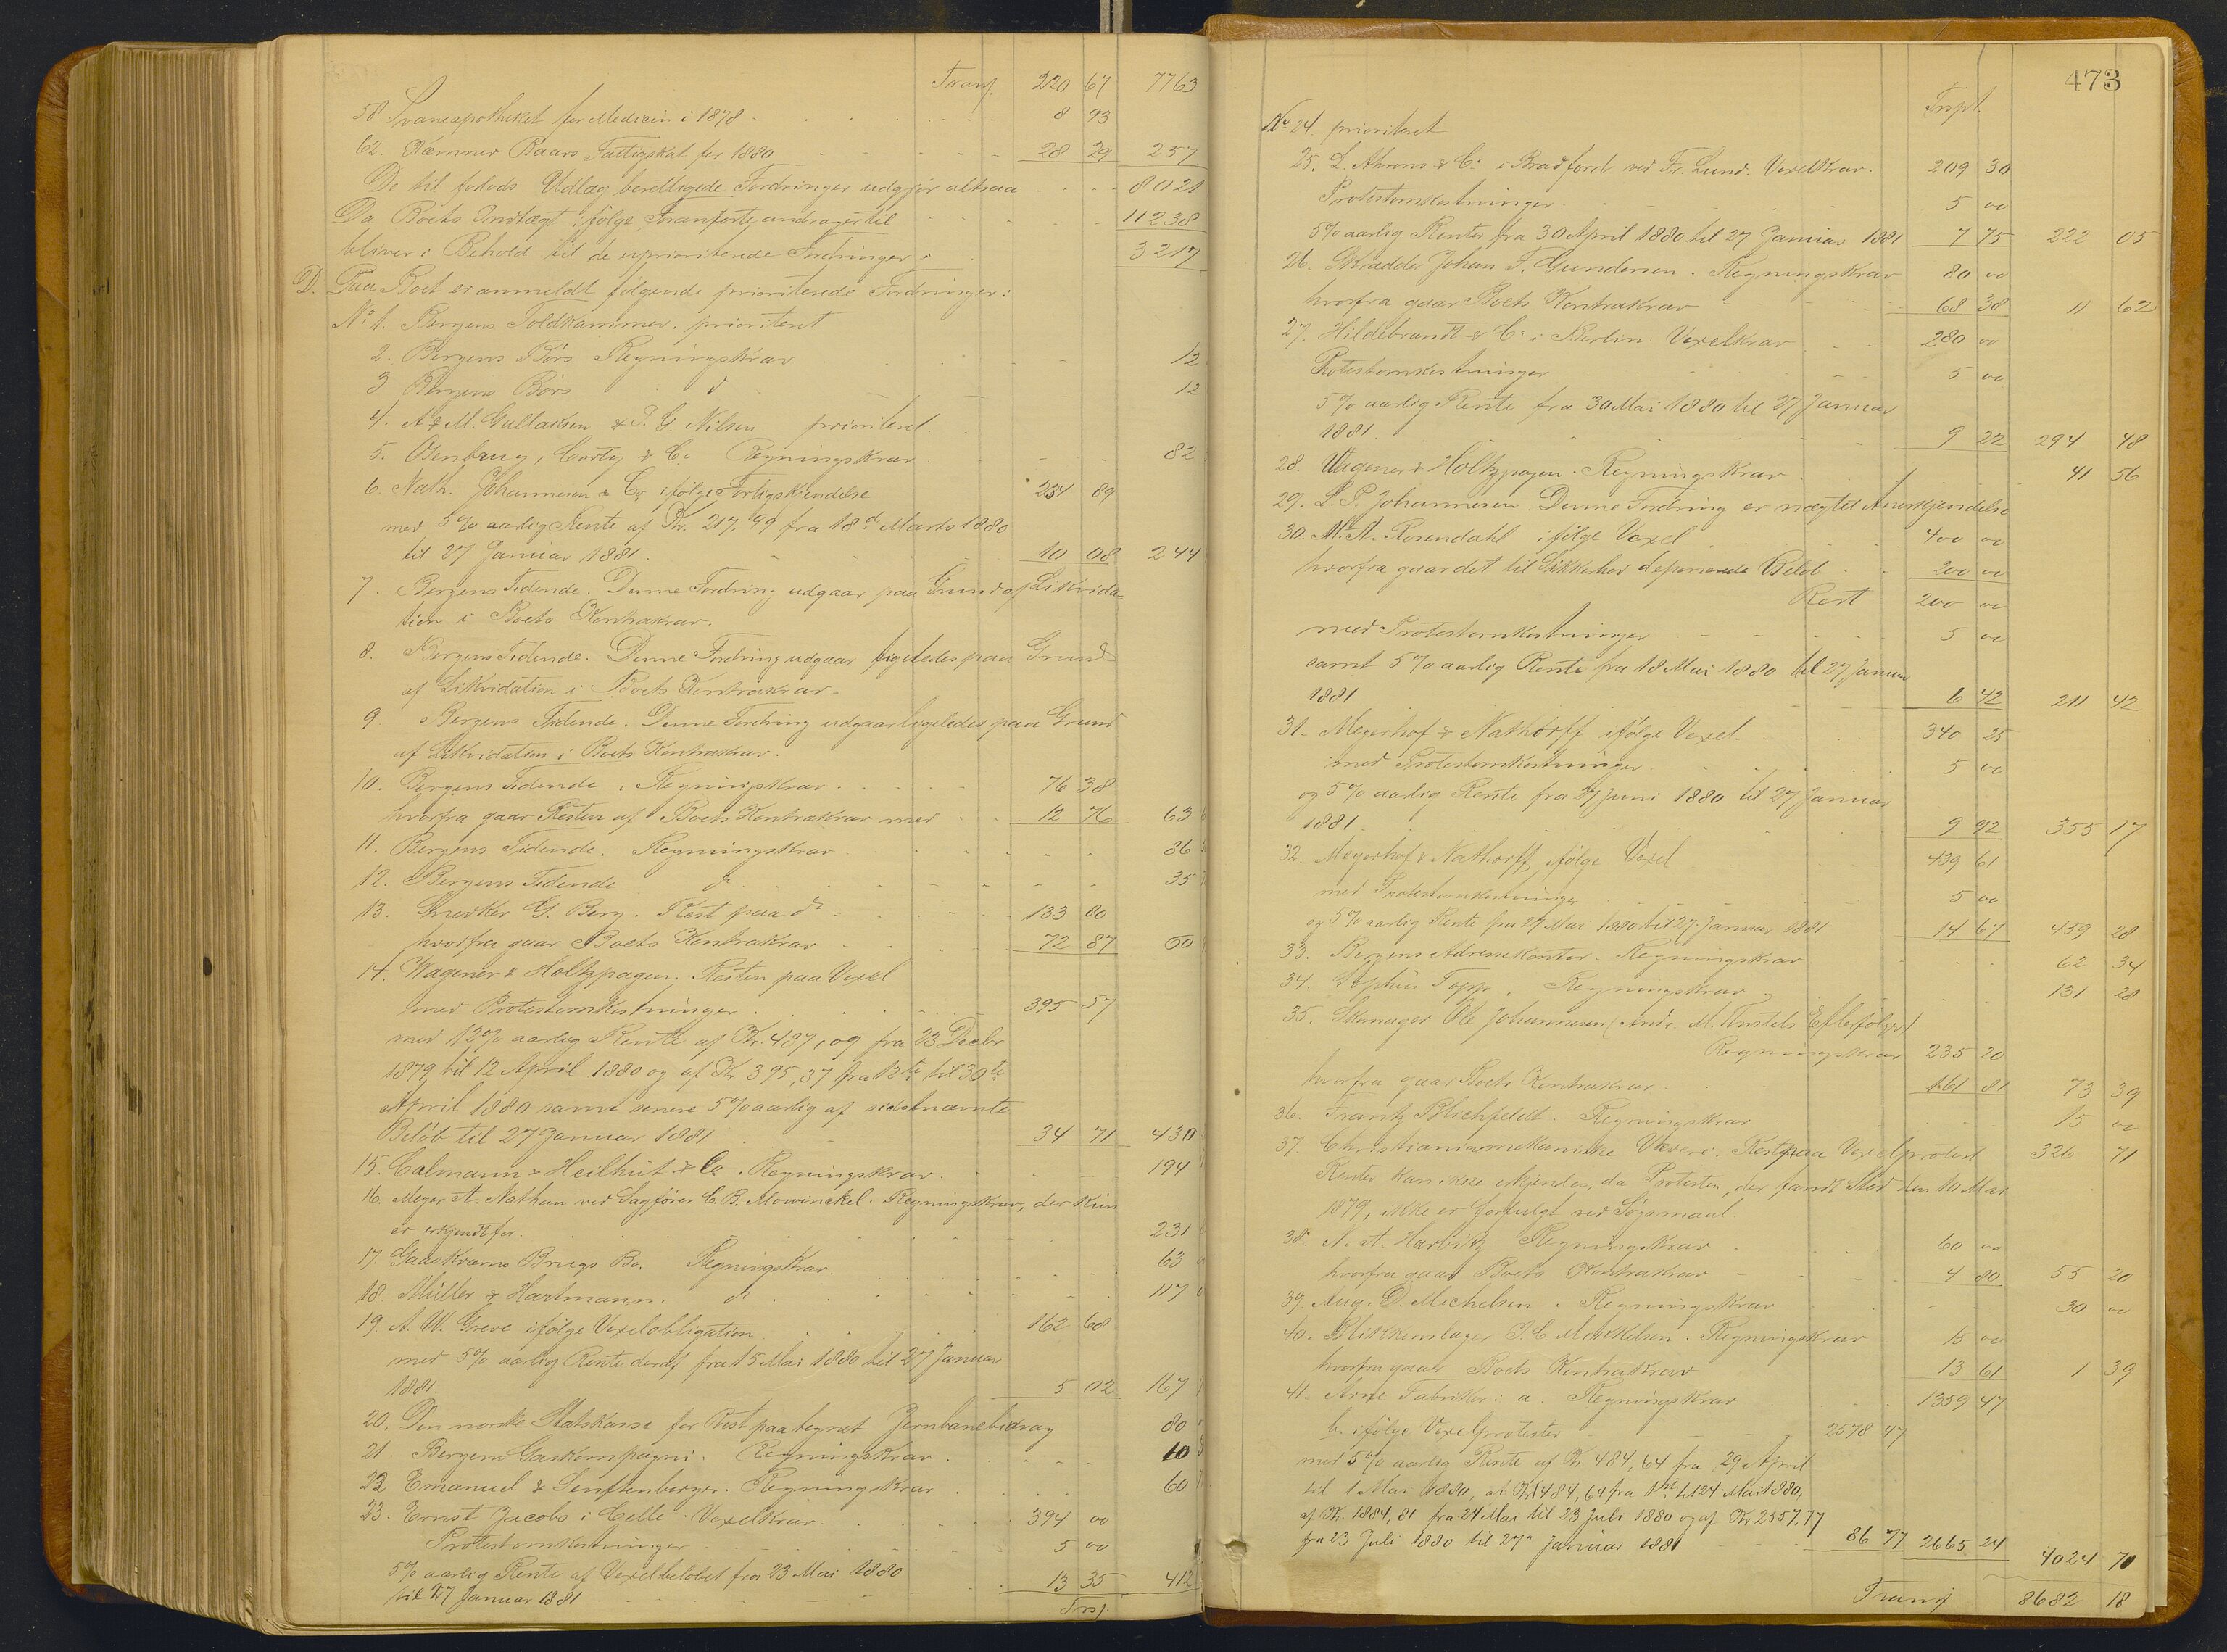 Transp. 220 67 7763
58. Svaneapotheket for Medicin i 1878 8 93
62. Kæmner Baars Fattigskat for 1880 28 29 257
De til forlods Udlæg berettigede Fordringer udgjør altsaa 8021
Da Boets Indtægt ifølge Transporte, andrager til 11238
bliver i Behold til de uprioriterede Fordringer: 3217
D. Paa Boet er anmeldt følgende prioriterede Fordringer:
No 1. Bergens Toldkammer. prioriteret
2. Bergens Børs Regningskrav 12
3 Bergens Børs do 12
4. A & M. Gullaksen & P. G. Nilsen prioriteret.
5. Osenbrug, Corty & Co Regningskrav 82
6. Nath. Johannesen & Co ifølge Forligskjendelse 234 89
med 5% aarlig Rente af Kr. 217,99 fra 18d Marts 1880
til 27 Januar 1881. 10 08 244
7. Bergens Tidende. Denne Fordring udgaar paa Grund af Likvida=
tion i Boets Kontrakrav.
8. Bergens Tidende. Denne Fordring udgaar ligeledes paa Grund
af Likvidation i Boets Kontrakrav.
9. Bergens Tidende. Denne Fordring udgaar ligeledes paa Grund
af Likvidation i Boets Kontrakrav.
10. Bergens Tidende, Regningskrav 76 38
hvorfra gaar Resten af Boets Kontrakrav med 12 76 63
11. Bergens Tidende. Regningskrav 86
12. Bergens Tidende do 35
13. Snedker G. Berg. Rest paa do 133 80
hvorfra gaar Boets Kontrakrav 72 87 60
14. Wagener & Holtzpagen. Resten paa Vexel
med Protestomkostninger 395 57
med 12% aarlig Rente af Kr. 487,09 fra 23 Decbr
1879 til 12 April 1880 og af Kr 395,37 fra 12te til 30te
April 1880 samt senere 5% aarlig af sidstnævnte
Beløb til 27 Januar 1881 34 71 430
15. Calmann & Heilhut & Co. Regningskrav. 194
16. Meyer A. Nathan ved Sagfører C. B. Mowinckel. Regningskrav, der kun
er erkjendt for. 231
17. Gaaskræns Brugs Bo. Regningskrav. 63
18 Müller & Hartmann. do 117
19. A. W. Greve ifølge Vexelobligation 162 68
med 5% aarlig Rente deraf fra 15 Mai 1880 til 27 Januar
1881. 5 02 167
20. Den norske Statskasse for Rest paa tegnet Jernbanebidrag 80
21. Bergens Gaskompagni. Regningskrav 10
22 Emanuel & Senftenberger. Regningskrav 60
23. Ernst Jacobs i Celle. Vexelkrav. 394 00
Protestomkostninger 5 00
5% aarlig Rente af Vexelbeløbet fra 23 Mai 1880
til 27 Januar 1881 13 35 412
Trsp.
473
Trspt.
No 24. prioriteret
25. L. Ahrons & Co i Bradford ved Fr. Lund. Vexelkrav. 209 30
Protestomkostninger. 5 00
5% aarlig Renter fra 30 April 1880 til 27 Januar 1881 7 75 222 05
26. Skrædder Johan F. Gundersen. Regningskrav 80 00
hvorfra gaar Boets Kontrakrav 68 38 11 62
27. Hildebrandt & Co i Berlin. Vexelkrav 280 00
Protestomkostninger 5 00
5% aarlig Rente fra 30 Mai 1880 til 27 Januar
1881. 9 22 294 48
28 Wagener & Holtzpagen. Regningskrav 41 56
29. L. P. Johannesen. Denne Fordring er nægtet Anerkjendelse
30. M. A. Rosendahl ifølge Vexel 400 00
hvorfra gaar det til Sikkerhed deponerede Beløb 200 00
Rest 200 00
med Protestomkostninger 5 00
samt 5% aarlig Rente fra 18 Mai 1880 til 27 Januar
1881 6 42 211 42
31. Meyerhof & Nathorff ifølge Vexel. 340 25
med Protestomkostninger 5 00
og 5% aarlig Rente fra 27 Juni 1880 til 27 Januar
1881. 9 92 355 17
32. Meyerhof & Nathorff, ifølge Vexel 439 61
med Protestomkostninger 5 00
og 5% aarlig Rente fra 27 Mai 1880 til 27 Januar 1881 14 67 459 28
33. Bergens Adressekontor. Regningskrav 62 34
34. Sophus Topp. Regningskrav 131 28
35. Skomager Ole Johannesen (Andr. M. Efterfølger)
Regningskrav 235 20
hvorfra gaar Boets Kontrakrav 161 81 73 39
36. Frantz Blichfeldt. Regningskrav 15 00
37. Christiania mekaniske Væveri. Rest paa Vexelprotest 326 71
Renter kan ikke erkjendes, da Protesten, der fandt Sted den 10 Mai
1879, ikke er forfulgt ved Søgsmaal.
38. A. A. Harbitz Regningskrav 60 00
hvorfra gaar Boets Kontrakrav 4 80 55 20
39. Aug. D. Michelsen. Regningskrav 30 00
40. Blikkenslager J. C. Mikkelsen. Regningskrav 15 00
hvorfra gaar Boets Kontrakrav 13 61 1 39
41. Arne Fabriker: a. Regningskrav 1359 47
b. ifølge Vexelprotester 2578 47
med 5% aarlig Rente af Kr. 484,64 fra 29 April
til 1 Mai 1880, af Kr 1484,64 fra 1ste til 24 Mai 1880,
af Kr. 1884,81 fra 24 Mai til 23 Juli 1880 og af Kr 2557,77
fra 23 Juli 1880 til 27 Januar 1881 86 77 2665 24
4024 70
Transp 8682 18